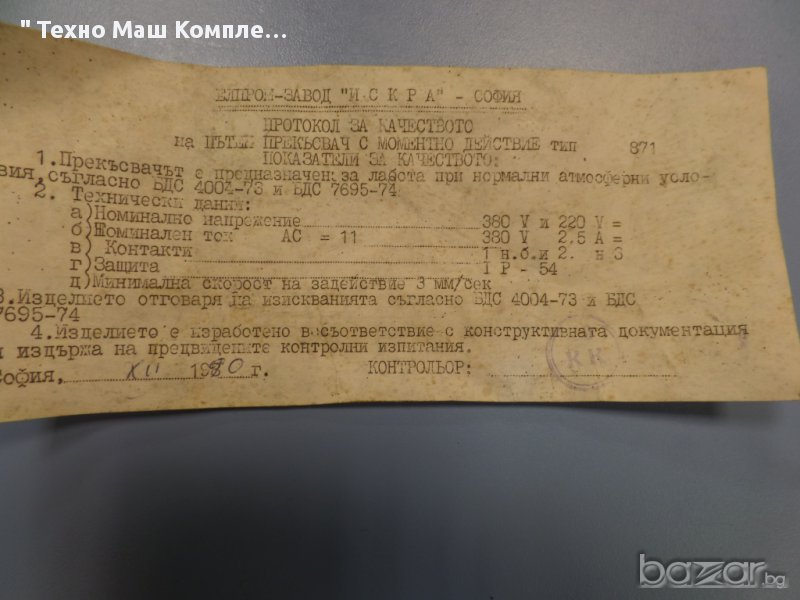 " Техно Маш Компле..."
ЕЛПРОМ-ЗАВОД "И С К Р А" - СОФИЯ
ПРОТОКОЛ ЗА КАЧЕСТВОТО
на ПЪТЕН ПРЕКЪСВАЧ С МОМЕНТНО ДЕЙСТВИЕ тип 871
ПОКАЗАТЕЛИ ЗА КАЧЕСТВОТО:
1.Прекъсвачът е предназначен за лабота при нормални атмосферни усло-
вия,съгласно БДС 4004-73 и БДС 7695-74
2. Технически данни:
а)Номинално напрежение 380 V и 220 V =
б)Номинален ток АС = 11 380 V 2.5 A =
в) Контакти 1 н.б.и 2. н 3
г)Защита I P - 54
д)Минимална скорост на задействие 3 мм/сек
3.Изделието отговаря на изискванията съгласно БДС 4004-73 и БДС
7695-74
4.Изделието е изработено в съответствие с конструктивната документация
и издържа на предвидените контролни изпитания.
София, XII 1980 г. КОНТРОЛЬОР:
bazar.bg